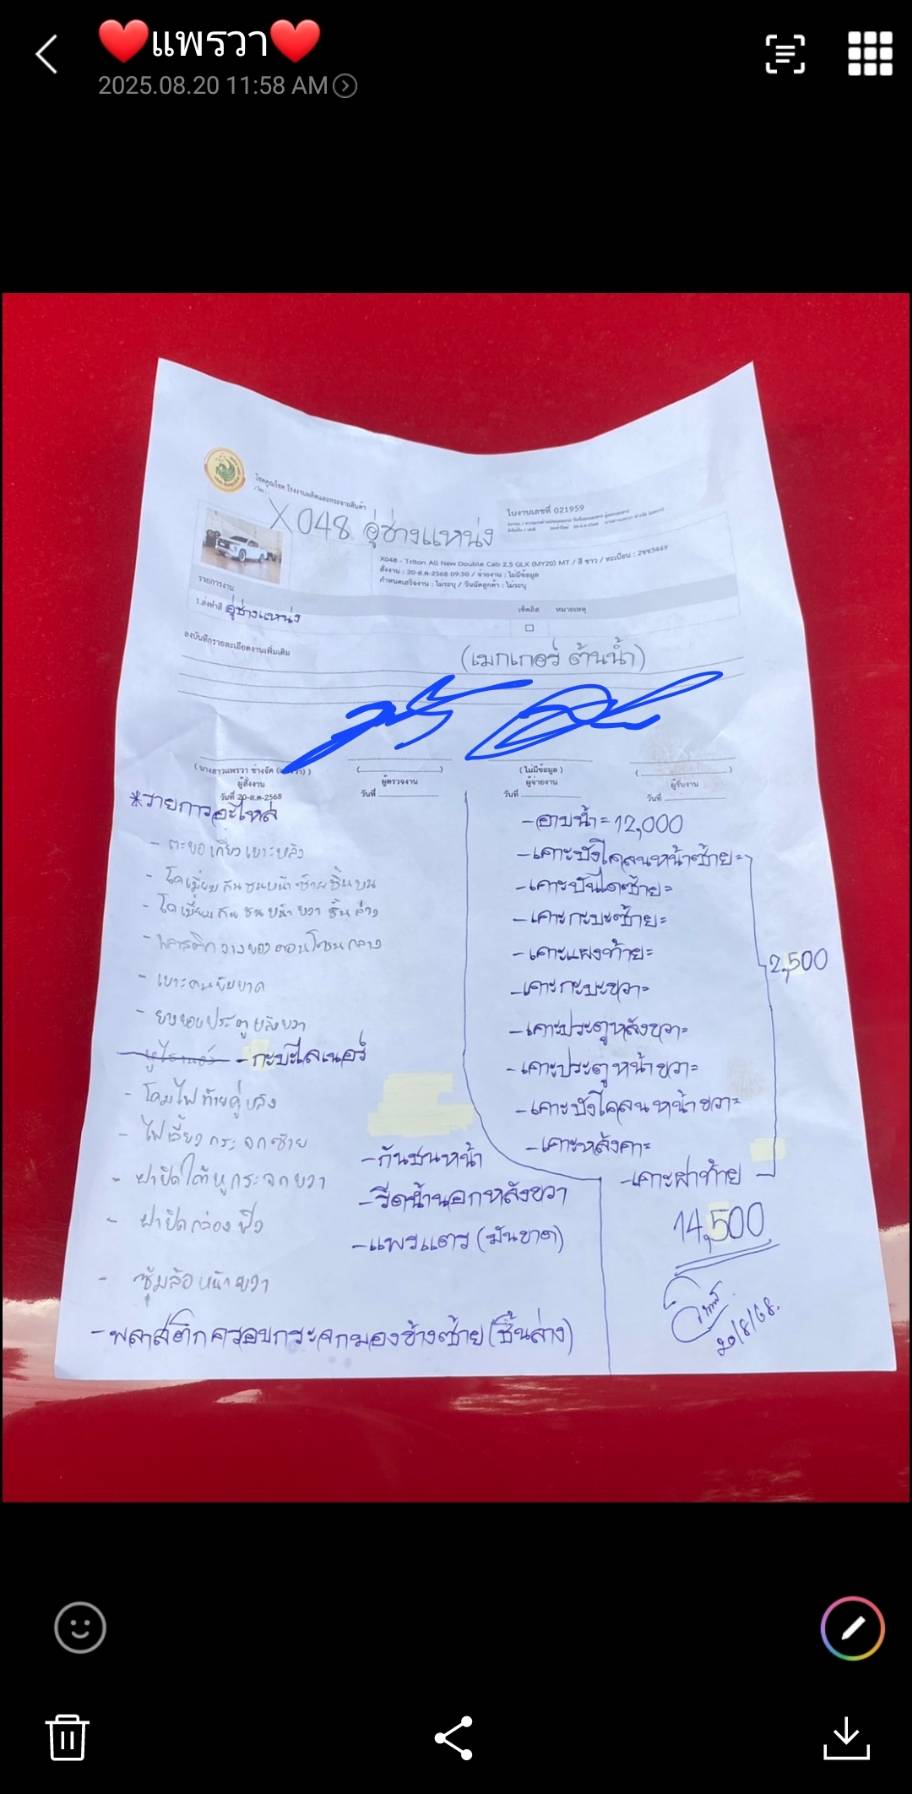 ❤️แพรวา❤️
2025.08.20 11:58 AM
โชคคูณโชค โรงงานผลิตและกระจายสินค้า
X048 อู่ช่างแหน่ง
ใบงานเลขที่ 021959
X048 - Triton All New Double Cab 2.5 GLX (MY20) MT / สี ขาว / ทะเบียน :
สั่งงาน : 20-ส.ค-2568 09:30 / จ่ายงาน : ไม่มีข้อมูล
กำหนดเสร็จงาน : ไม่ระบุ / วันนัดลูกค้า : ไม่ระบุ
รายการงาน
เช็คลิส หมายเหตุ
1.ส่งทำสี อู่ช่างแหน่ง
ลงบันทึกรายละเอียดงานเพิ่มเติม
(เมกเกอร์ ต้นน้ำ)
(นางสาวแพรวา ช่างจัด
ผู้สั่งงาน
วันที่ 20-ส.ค-2568
ผู้ตรวจงาน
วันที่
(ไม่มีข้อมูล)
ผู้จ่ายงาน
วันที่
ผู้รับงาน
วันที่
*รายการอะไหล่
- ตะขอเกี่ยวเบาะหลัง
- โคเมี่ยมกันชนหน้าซ้ายชิ้นบน
- โคเมี่ยมกันชนหน้าขวาชิ้นล่าง
- พลาสติกวางของคอนโซนกลาง
- เบาะคนขับขาด
- ยางขอบประตูหลังขวา
- กะบะไลเนอร์
- โคมไฟท้ายคู่หลัง
- ไฟเลี้ยวกระจกซ้าย
- ฝาปิดใต้หูกระจกขวา
- ฝาปิดกล่องฟิว
- ซุ้มล้อหน้าขวา
- พลาสติกครอบกระจกมองข้างซ้าย(ชิ้นล่าง)
- กันชนหน้า
- รีดน้ำนอกหลังขวา
- แพรแตร (มันขาด)
- อาบน้ำ = 12,000
- เคาะบังโคลนหน้าซ้าย=
- เคาะบันไดซ้าย=
- เคาะกะบะซ้าย=
- เคาะแผงท้าย=
- เคาะกะบะขวา=
- เคาะประตูหลังขวา=
- เคาะประตูหน้าขวา=
- เคาะบังโคลนหน้าขวา=
- เคาะหลังคา=
- เคาะฝาท้าย
2,500
14,500
20/8/68.